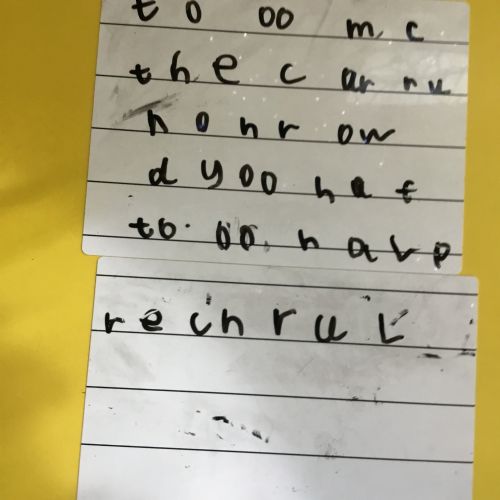 to oo m c
the c ar ru
h o n r ow
d yoo h a t
to. oo. h a v p
r e c h r u l